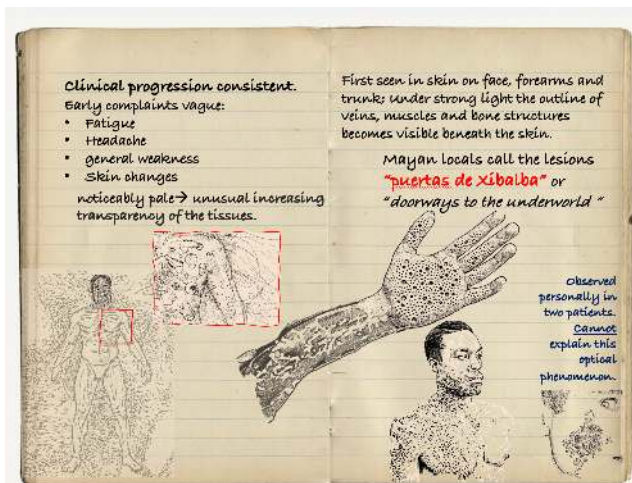 Clinical progression consistent.
Early complaints vague:
• Fatigue
• Headache
• general weakness
• Skin changes
noticeably pale→ unusual increasing
transparency of the tissues.
First seen in skin on face, forearms and
trunk; under strong light the outline of
veins, muscles and bone structures
becomes visible beneath the skin.
Mayan locals call the lesions
"puertas de Xibalba" or
"doorways to the underworld "
Observed
personally in
two patients.
Cannot
explain this
optical
phenomenon.